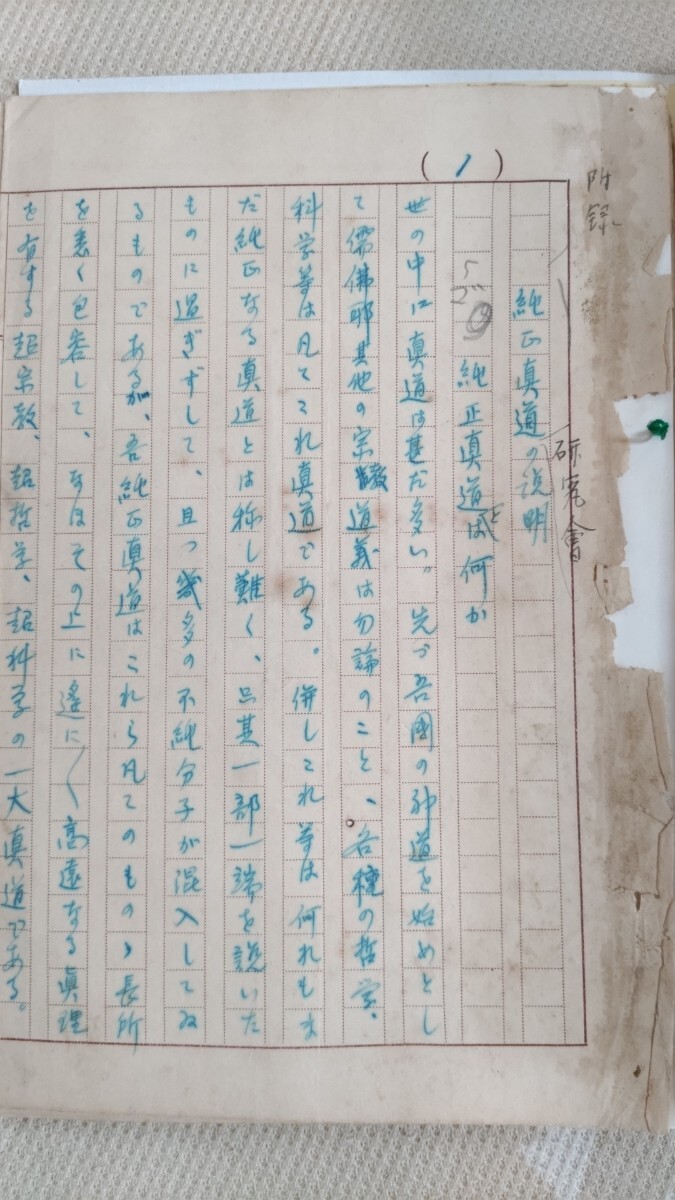 (1)
附録
研究會
純正真道の説明
5ゴ
純正真道とは何か
世の中に真道は甚だ多い。先づ吾國の神道を始めとし
て儒佛耶其他の宗教道義は勿論のこと、各種の哲学、
科学等は凡てこれ真道である。併しこれ等は何れもま
だ純正なる真道とは称し難く、只其一部一端を説いた
ものに過ぎずして、且つ幾多の不純分子が混入してゐ
るものであるが、吾純正真道はこれら凡てのものゝ長所
を悉く包容して、なほその上に遙に〱高遠なる真理
を有する超宗教、超哲学、超科学の一大真道である。